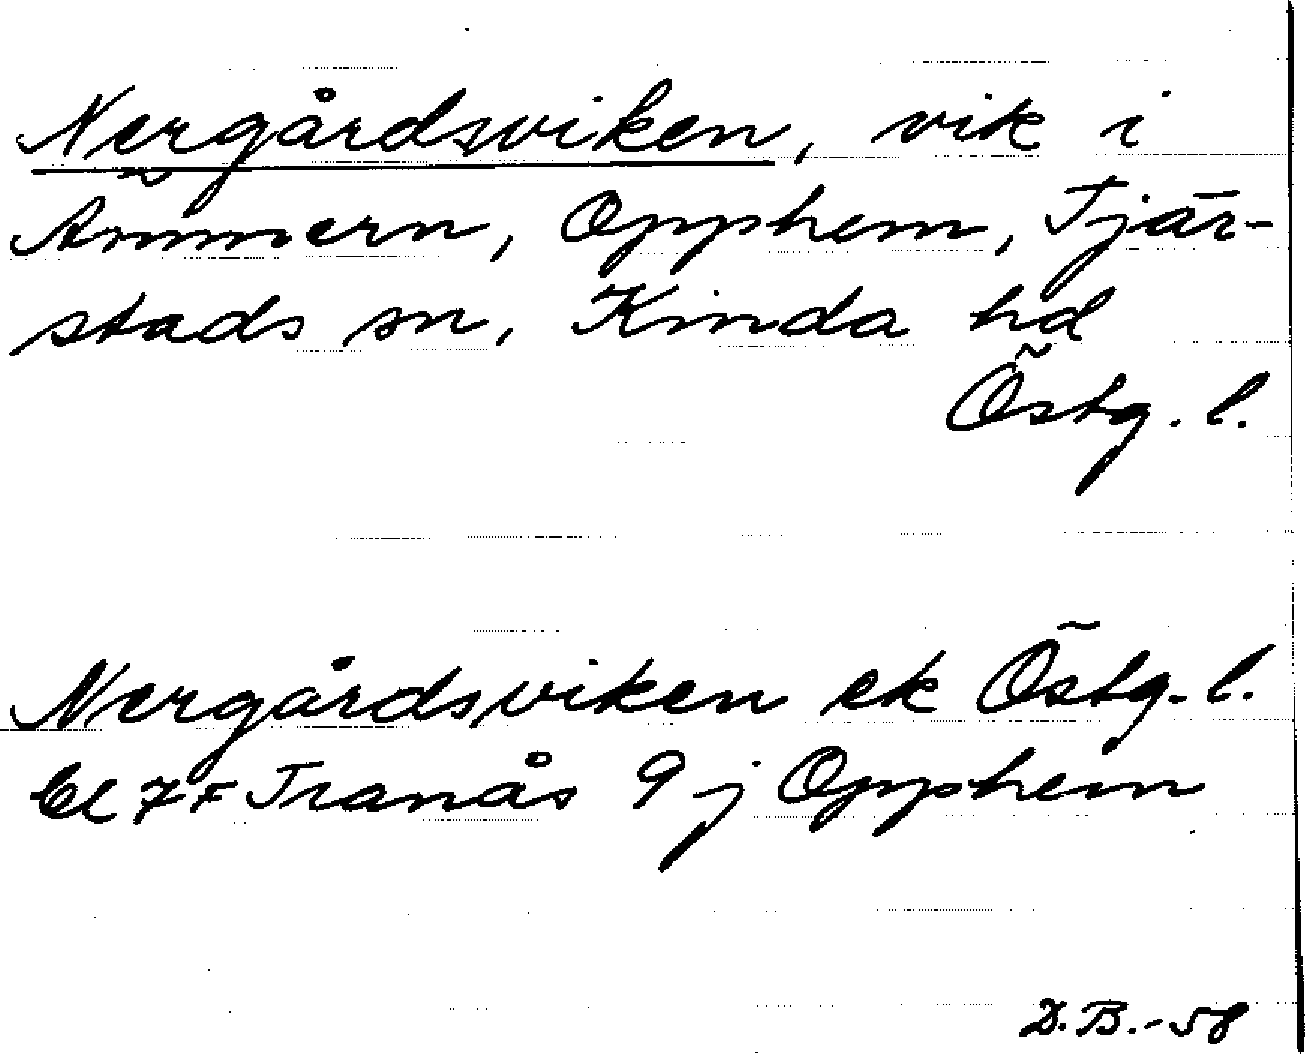 Nergårdsviken, vik i
Ämmern, Opphem, Tjär-
stads sn, Kinda hd
Östg. l.
Nergårdsviken ek Östg. l.
bl 7 F Tranås 9 j Opphem
D.B.-58